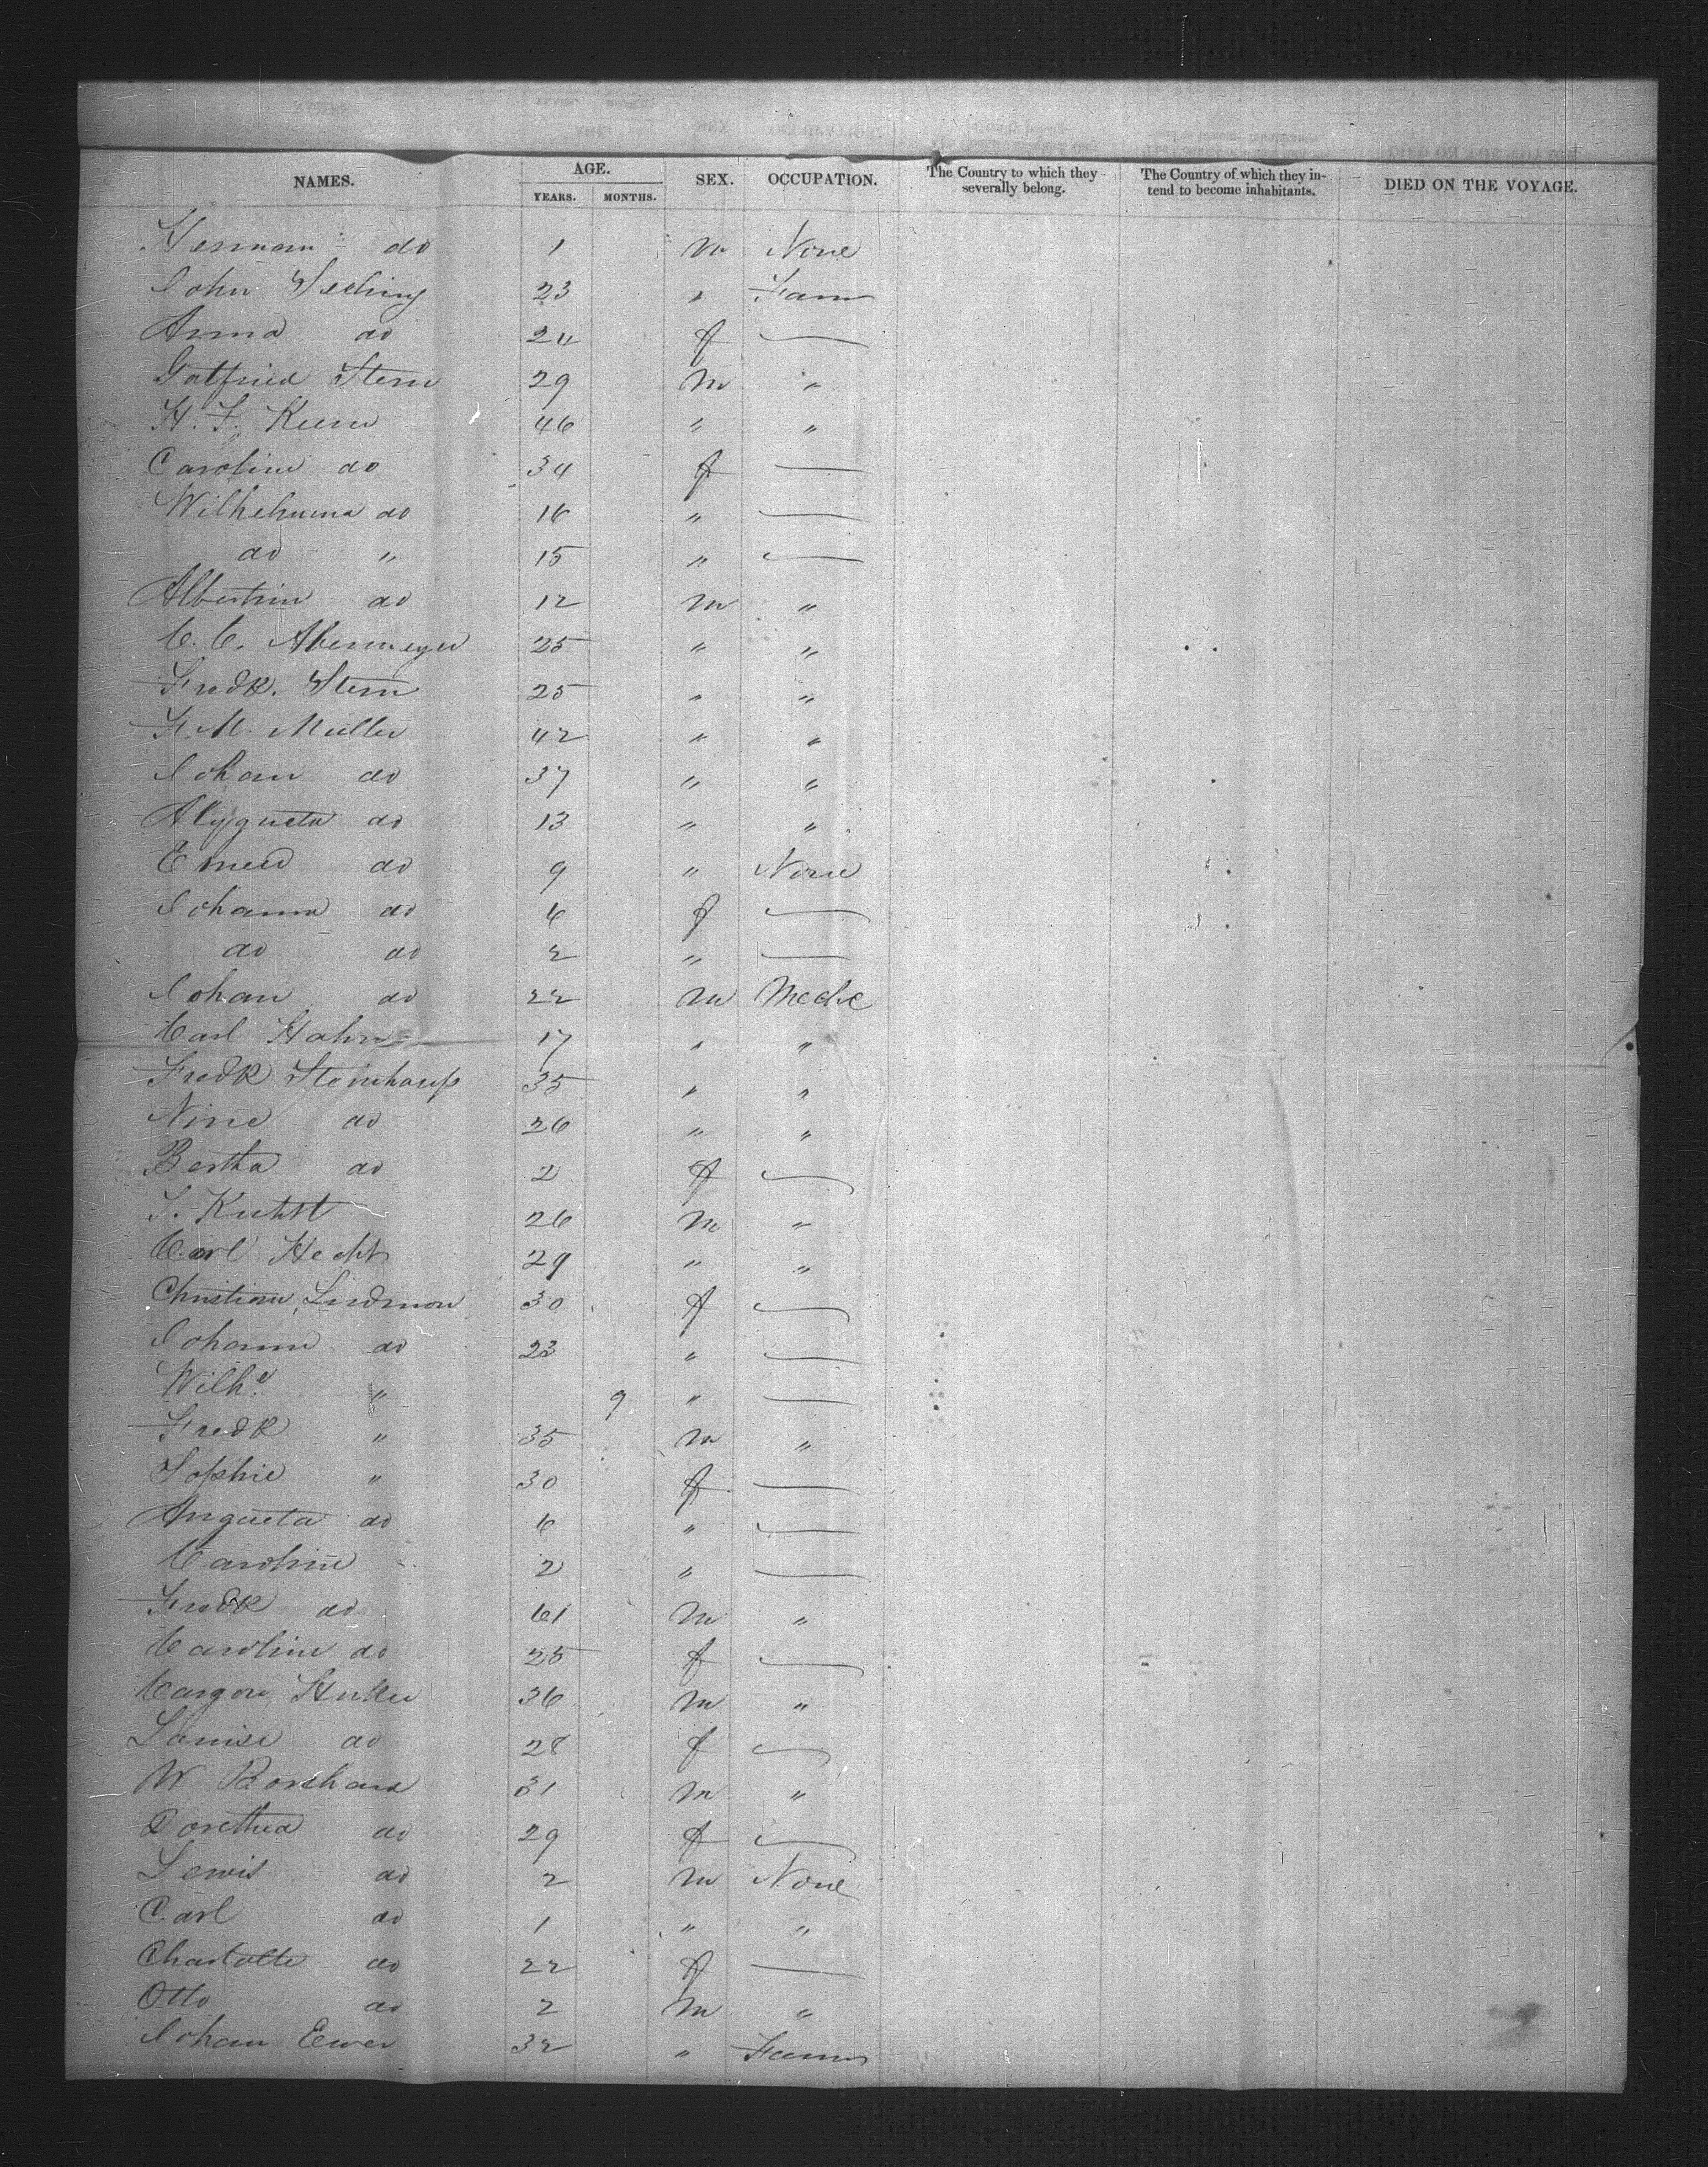 NAMES. AGE. YEARS. MONTHS. SEX. OCCUPATION. The Country to which they severally belong. The Country of which they intend to become inhabitants. DIED ON THE VOYAGE.
Herman do 1 m None
John Seching 23 " Farm
Anna do 24 f —
Gotfried Stern 29 m "
H. F. Keem 46 " "
Caroline do 34 f —
Wilhelmina do 16 " —
do " 15 " —
Albertine do 12 m "
C. C. Abermeyer 25 " "
Fredk. Stern 25 " "
F. M. Muller 42 " "
Johan do 37 " "
do 13 " "
do 9 " None
Johanna do 6 f —
do do 2 " —
Johan do 22 m Mechc
Carl Hahn 17 " "
Fredk Steinhauf 35 " "
Nine do 26 " "
Bertha do 2 f —
Kuhst 26 m "
Carl Hecht 29 " "
Christian Lindmon 30 f —
Johann do 23 " —
Wilhe. " 9 " —
Fredk " 35 m "
Sophie " 30 f —
Augueta do 6 " —
Caroline 2 " —
Fredk do 61 m "
Caroline do 25 f —
36 m "
Louise do 28 f —
W Borchard 31 m "
Dorethea do 29 f —
Lewis do 2 m None
Carl do 1 " "
Charlotte do 22 f —
Otto do 2 m "
Johan Eewer 32 " Farm